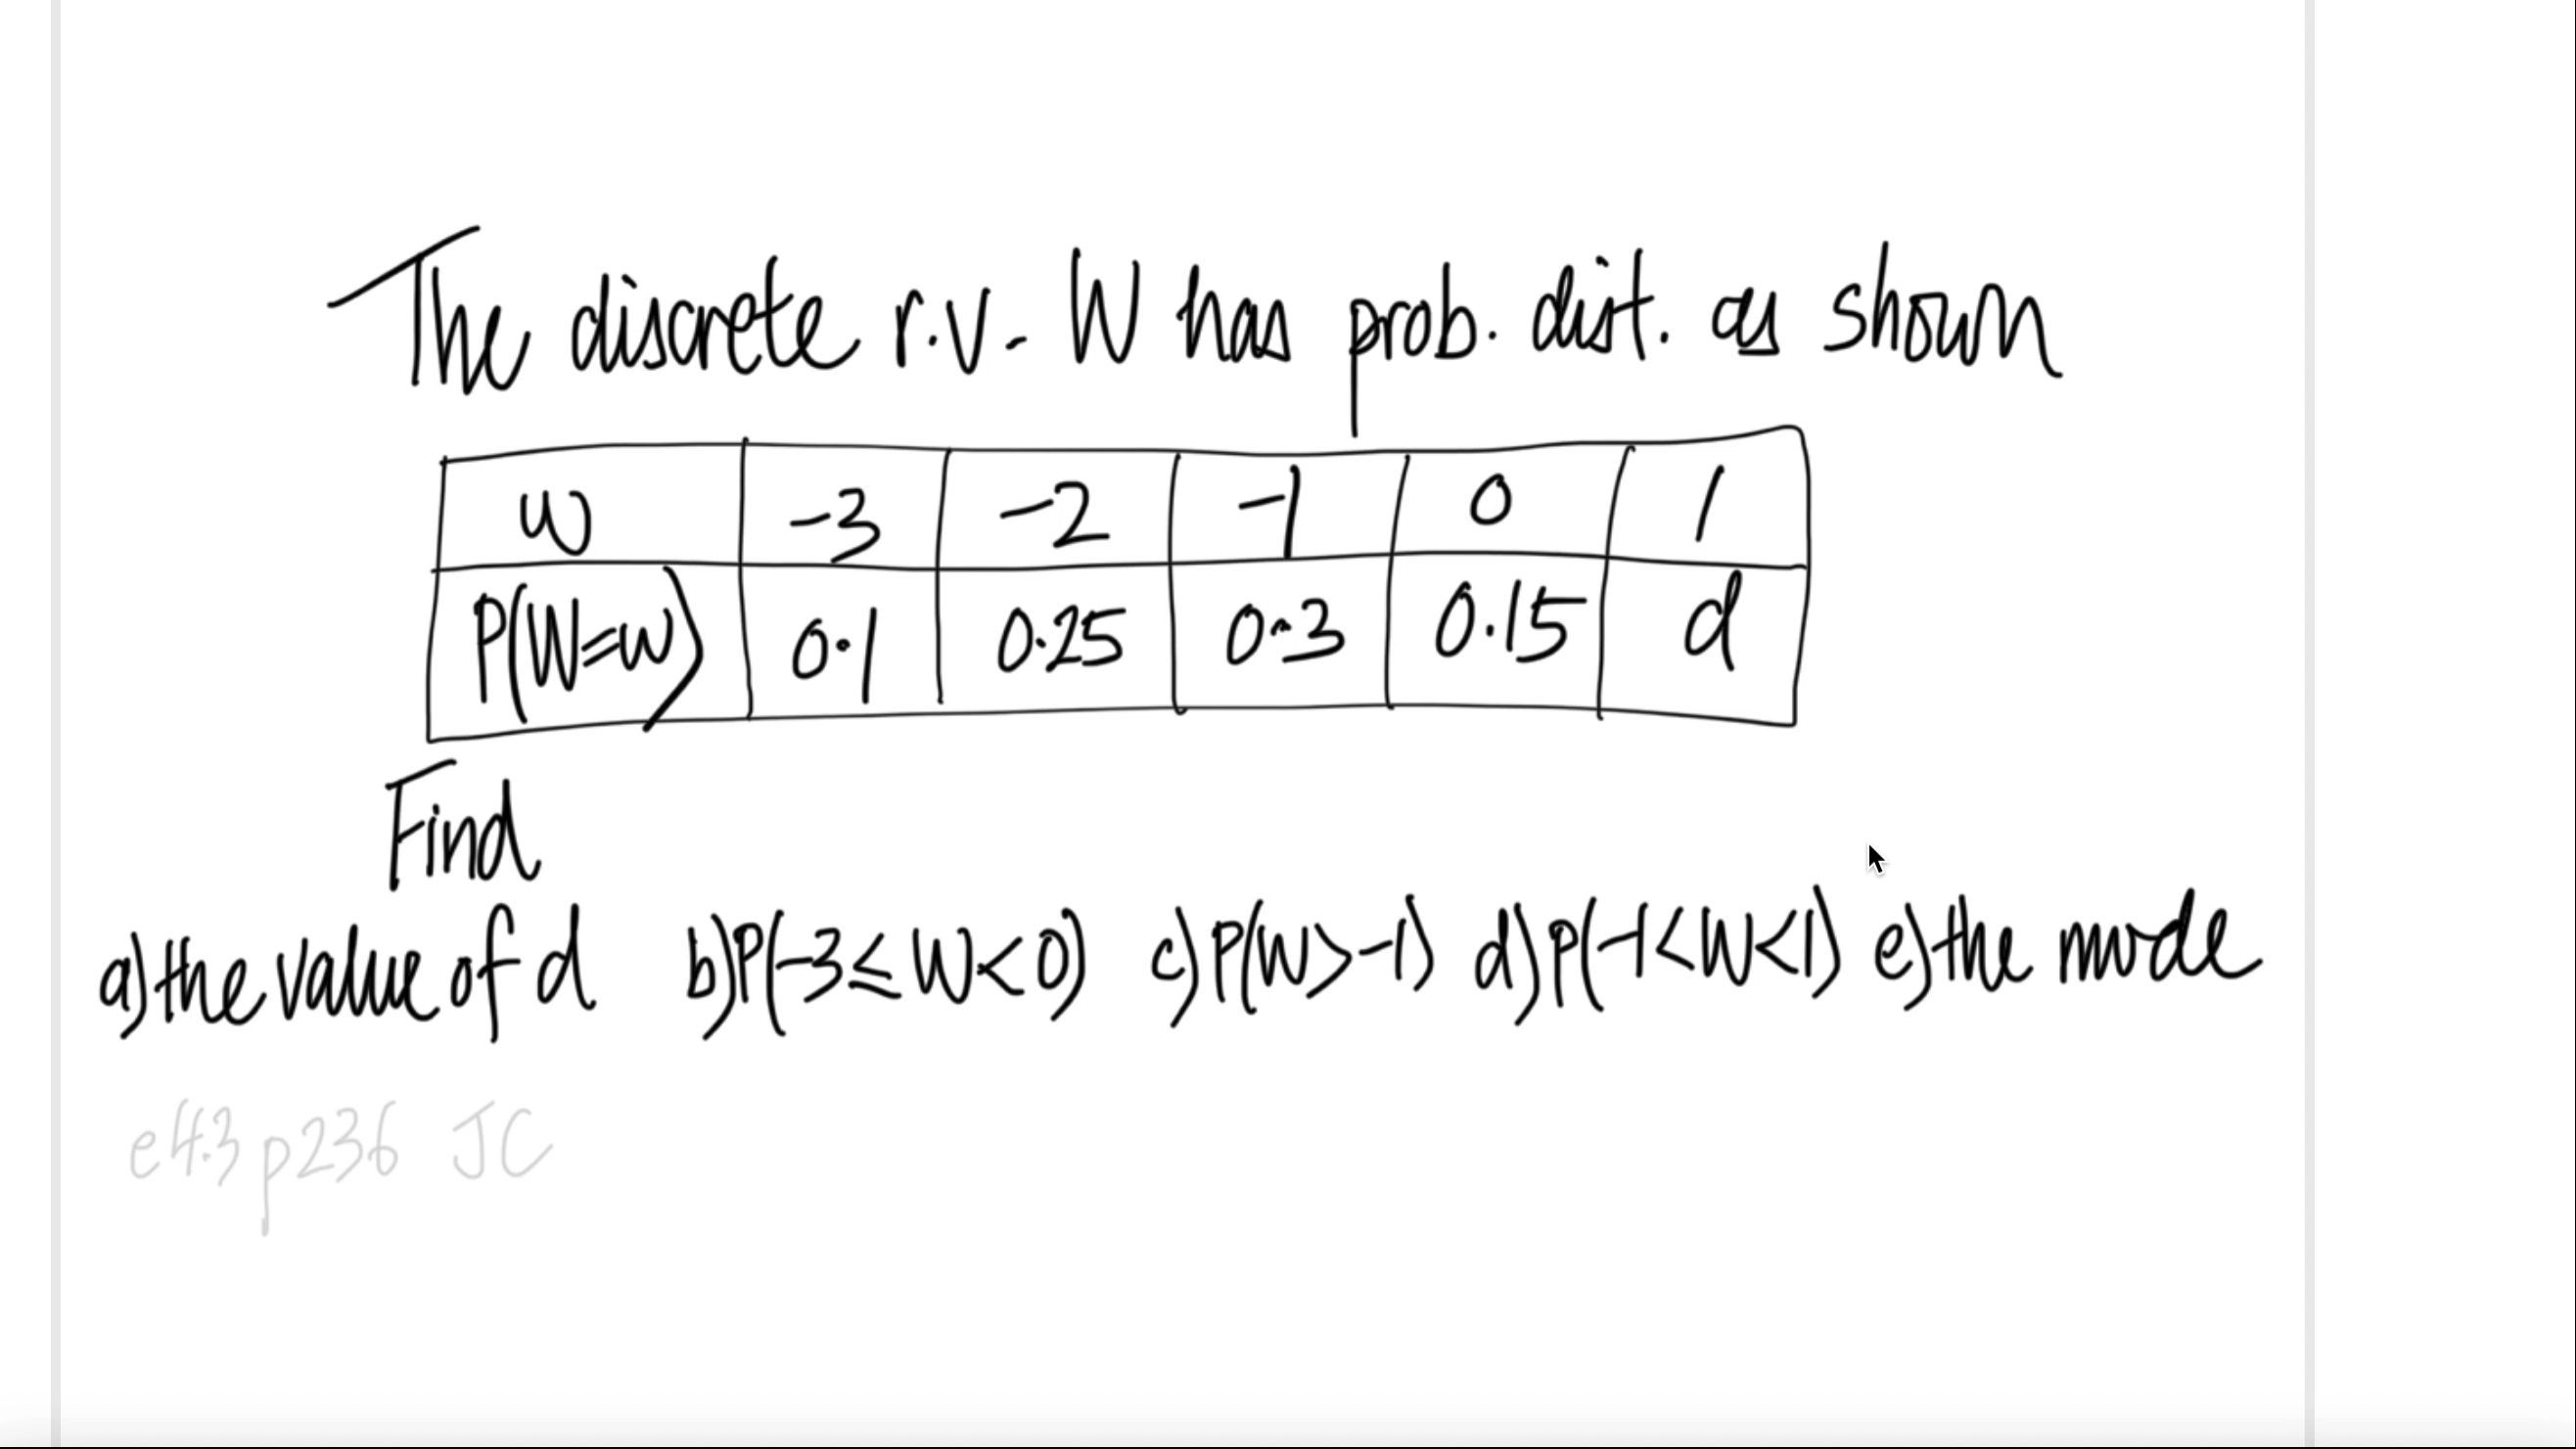 The discrete r.v. W has prob. dist. as shown
w -3 -2 -1 0 1
P(W=w) 0.1 0.25 0.3 0.15 d
Find
a) the value of d b) P(-3≤W<0) c) P(W>-1) d) P(-1<W<1) e) the mode
e4.3 p236 JC